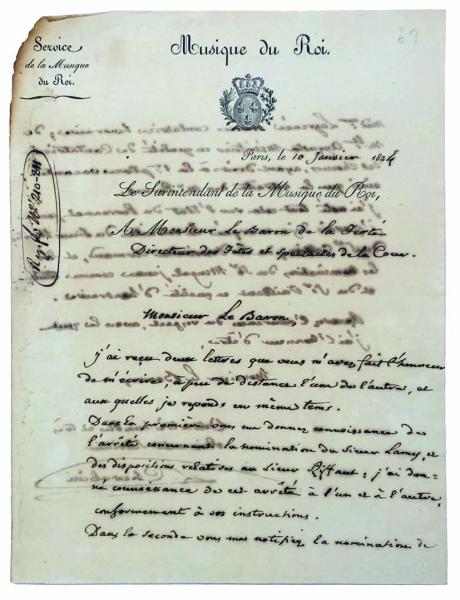 Service
de la Musique
du Roi.
Musique du Roi.
67
Paris, le 10 Janvier 1824
Le Surintendant de la Musique du Roi,
A Monsieur Le Baron de la Ferté
Directeur des Fetes et Spectacles de la Cour.
Monsieur Le Baron
j'ai reçu deux lettres que vous m'avez fait l'honneur
de m'écrire, à peu de distance l'une de l'autre, et
aux quelles je reponds en même tems.
Dans la premiere vous me donnez connoissance de
l'arrêté concernant la nomination du Sieur Lamy, et
des dispositions relatives au Sieur Riffaut; j'ai don-
né connoissance de cet arrêté à l'un et à l'autre,
conformement à vos instructions.
Dans la seconde vous me notifiez la nomination de